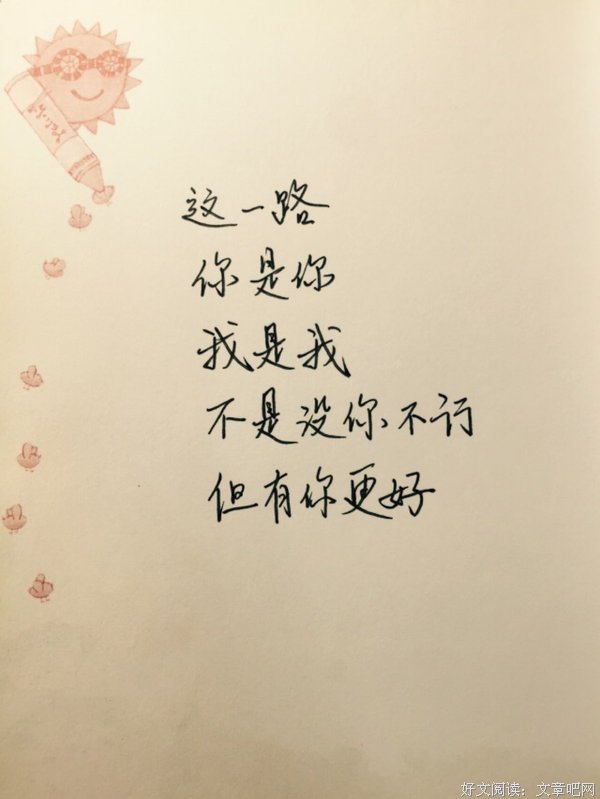 这一路
你是你
我是我
不是没你不行
但有你更好
好文阅读:文章吧网